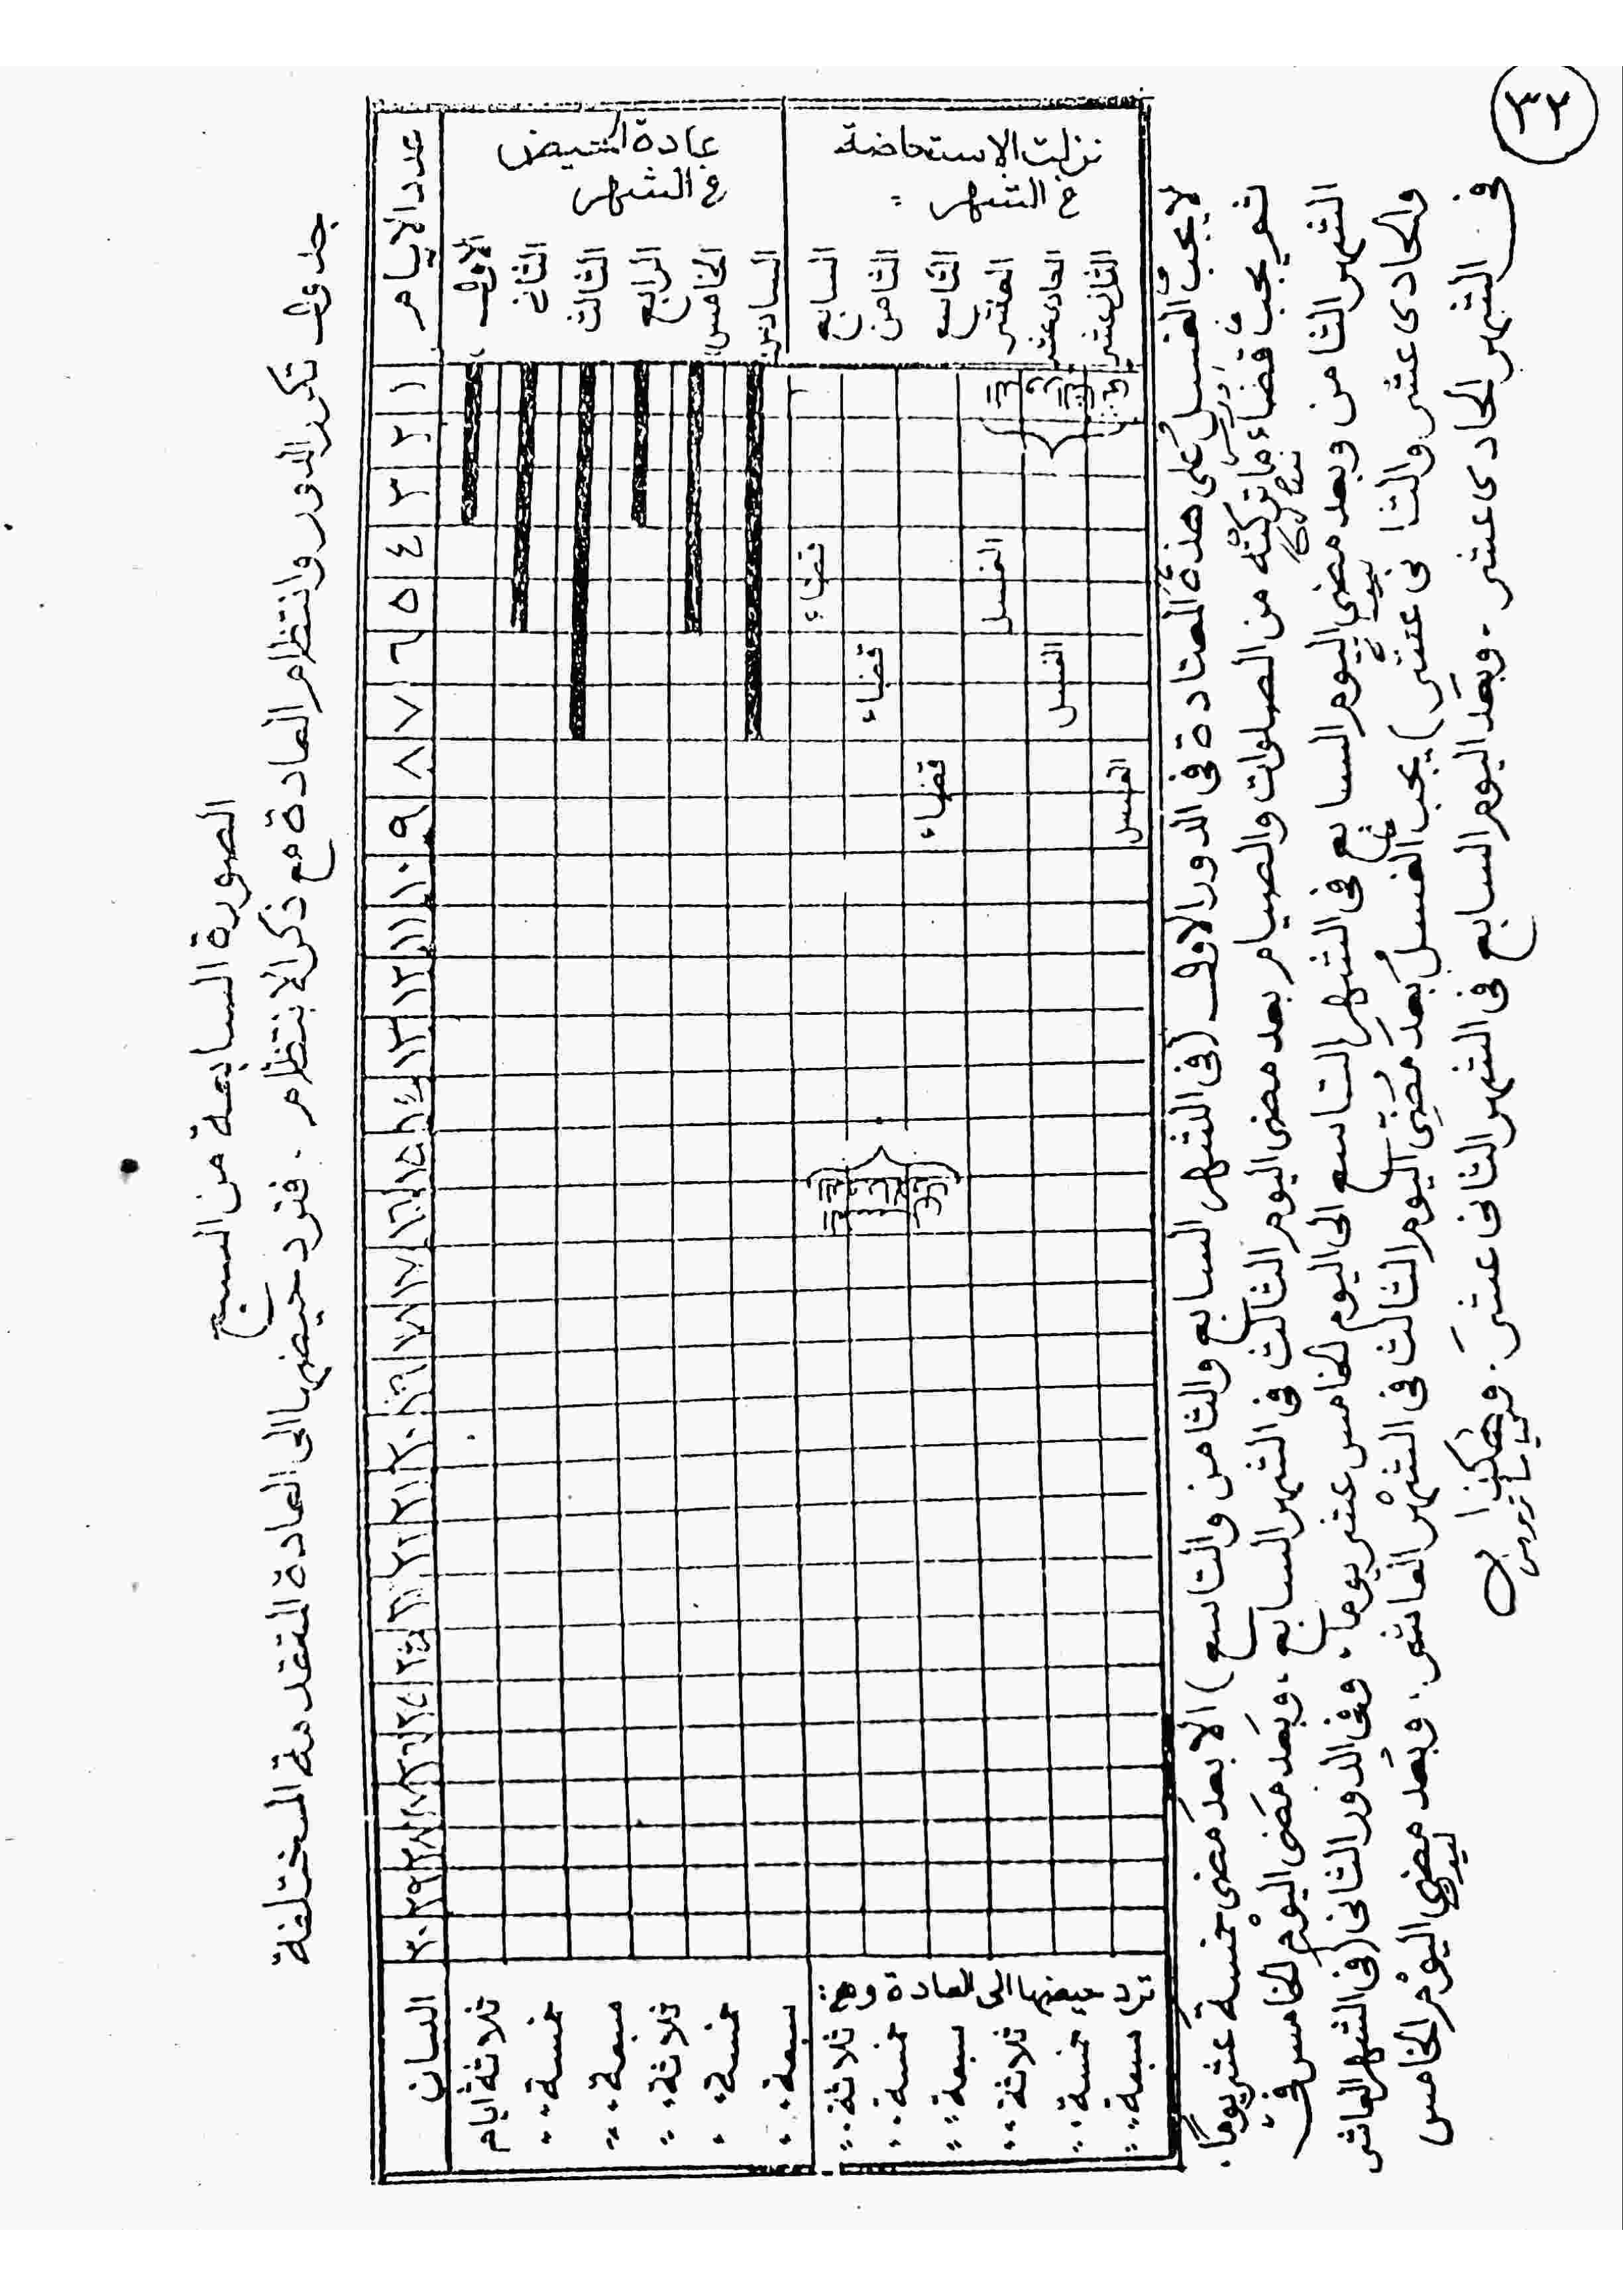 ٣٣
الصورة السابعة من السبع
جدول تكرر الدور وانتظام العادة مع ذكر الانتظام . فترد حيضها الى العادة المتقدمة المختلفة
عدد الايام ١ ٢ ٣ ٤ ٥ ٦ ٧ ٨ ٩ ١٠ ١١ ١٢ ١٣ ١٤ ١٥ ١٦ ١٧ ١٨ ١٩ ٢٠ ٢١ ٢٢ ٢٣ ٢٤ ٢٥ ٢٦ ٢٧ ٢٨ ٢٩ ٣٠ البيان
عادة الحيض
في الشهر
الاول ثلاثة ايام
الثاني خمسة
الثالث سبعة
الرابع ثلاثة
الخامس خمسة
السادس سبعة
نزلت الاستحاضة
في الشهر
ترد حيضها الى العادة وهى
السابع قضاء ثلاثة
الثامن قضاء خمسة
التاسع قضاء سبعة
العاشر الغسل ثلاثة
الحادي عشر الغسل خمسة
الثاني عشر الغسل سبعة
لا يجب الغسل على هذه المعتادة فى الدور الاول (فى الشهر السابع والثامن والتاسع) الا بعد مضى خمسة عشر يوما.
ثم يجب قضاء ما تركته من الصلوات والصيام بعد مضى اليوم الثالث فى الشهر السابع، وبعد مضى اليوم الخامس فى
الشهر الثامن وبعد مضى اليوم السابع فى الشهر التاسع الى اليوم الخامس عشر يوما. وفى الدور الثانى (فى الشهر العاشر
والحادى عشر والثانى عشر) يجب الغسل بعد مضى اليوم الثالث فى الشهر العاشر. وبعد مضى اليوم الخامس
فى الشهر الحادى عشر - وبعد اليوم السابع فى الشهر الثانى عشر. وهكذا